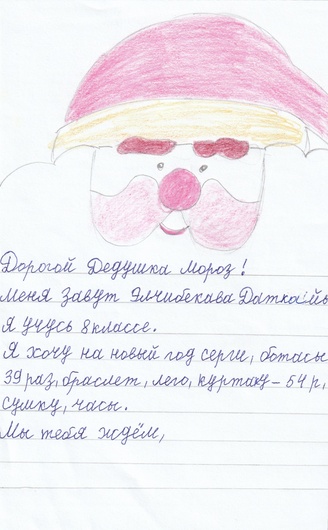 Дорогой Дедушка Мороз!
Меня Завут Элчибекава Даткайы
Я учусь 8 классе.
Я хочу на новый год серги, ботасы
39 раз, браслет, лего, куртаку - 54 р,
сумку, часы.
Мы тебя ждём,